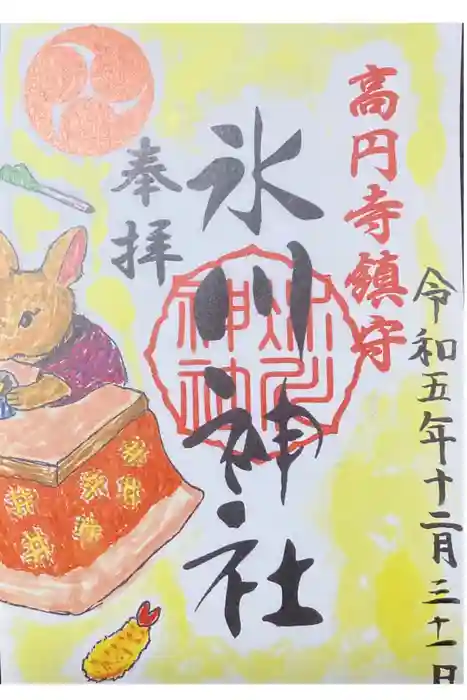 高円寺鎮守
令和五年十二月三十一日
氷川神社
奉拝